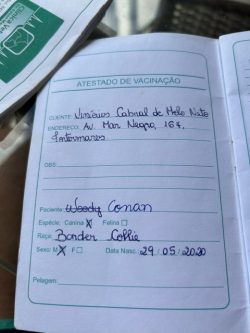 ATESTADO DE VACINAÇÃO
CLIENTE: Vinícius Cabral de Melo Neto
ENDEREÇO: Av. Mar Negro, 167,
Intermares
OBS:
Paciente: Woody Conan
Espécie: Canina X Felina
Raça: Border Collie
Sexo: M X F Data Nasc: 29/05/2020
Pelagem: